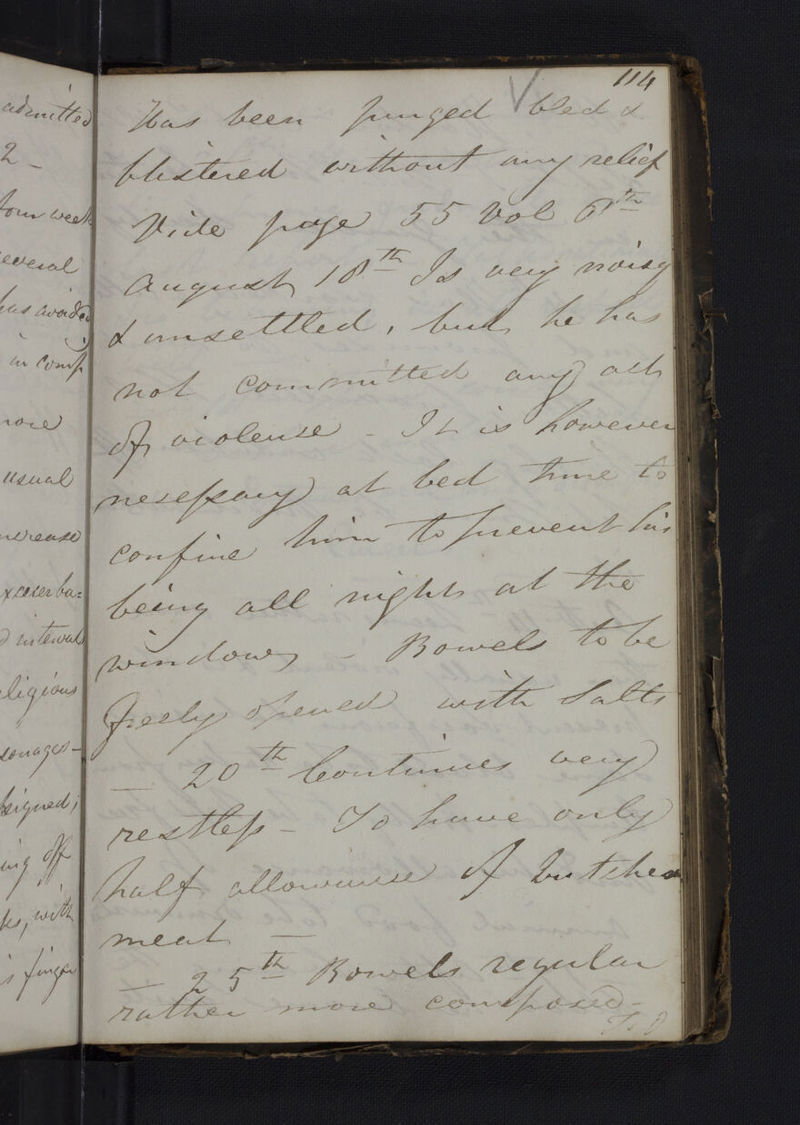 admitted
2 -
four week
several
has avoided
in comp
more
usual
increase
exacerba=
d interval
eligious
sonages -
signed;
ing off
ks, with
s finger
114
Has been purged bled &
blistered without any relief
Vide page 55 Vol 6th
August 18th Is very noisy
& unsettled, but he has
not committed any act
of violense - It is however
nesessary at bed time to
confine him to prevent his
being all night at the
window - Bowels to be
freely opened with Salts
— 20th Continues very
restless - To have only
half allowanse of butcher
meat —
— 25th Bowels regular
rather more composed -